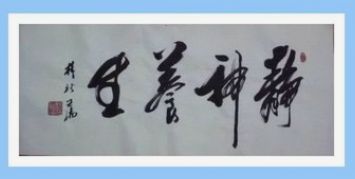 静神养生